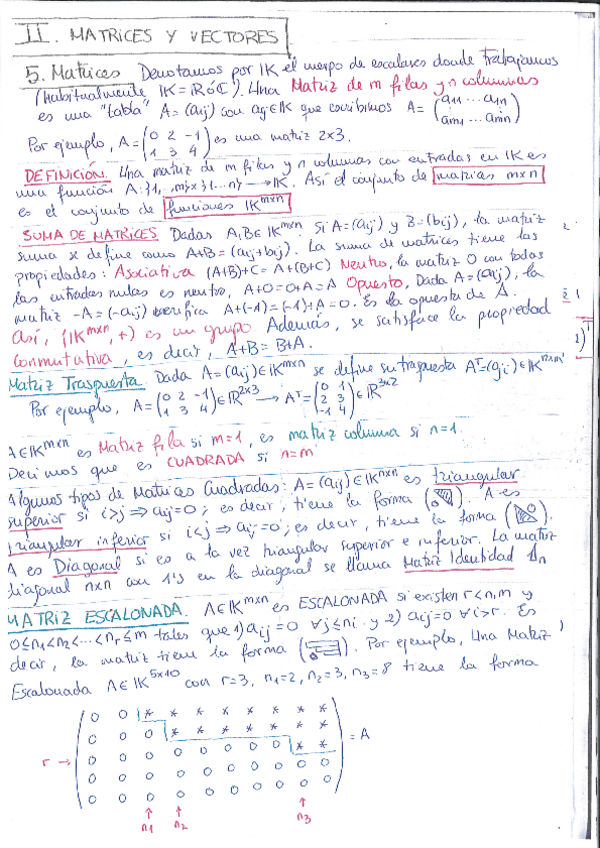 II. MATRICES Y VECTORES
5. Matrices Denotamos por IK el cuerpo de escalares donde trabajamos
(Habitualmente IK = IR ó C). Una Matriz de m filas y n columnas
es una "tabla" A = (aij) con aij ∈ IK que escribimos A = (a11 ... a1n / am1 ... amn)
Por ejemplo, A = (0 2 -1 / 1 3 4) es una matriz 2x3.
DEFINICIÓN. Una matriz de m filas y n columnas con entradas en IK es
una función A: {1, ..m} x {1...n} → IK. Así el conjunto de matrices mxn
es el conjunto de funciones IK^mxn
SUMA DE MATRICES Dadas A, B ∈ IK^mxn. Si A = (aij) y B = (bij), la matriz
suma se define como A+B = (aij + bij). La suma de matrices tiene las
propiedades: Asociativa (A+B)+C = A+(B+C) Neutro, la matriz 0 con todas
las entradas nulas es neutro, A+0=0+A=A Opuesto, Dada A=(aij), la
matriz -A=(-aij) verifica A+(-A)=(-A)+A=0. Es la opuesta de A.
Así, (IK^mxn, +) es un grupo Además, se satisface la propiedad
Conmutativa, es decir, A+B = B+A.
Matriz Traspuesta. Dada A=(aij) ∈ IK^mxn se define su traspuesta A^T=(aji) ∈ IK^nxm
Por ejemplo, A = (0 2 -1 / 1 3 4) ∈ IR^2x3 → A^T = (0 1 / 2 3 / -1 4) ∈ IR^3x2
A ∈ IK^mxn es Matriz fila si m=1, es matriz columna si n=1.
Decimos que es CUADRADA si n=m
Algunos tipos de Matrices Cuadradas: A=(aij) ∈ IK^nxn es triangular
superior si i>j ⇒ aij=0; es decir, tiene la forma ( ). A es
triangular inferior si i<j ⇒ aij=0; es decir, tiene la forma ( ).
A es Diagonal si es a la vez triangular superior e inferior. La matriz
diagonal nxn con 1's en la diagonal se llama Matriz Identidad 1n
MATRIZ ESCALONADA. A ∈ IK^mxn es ESCALONADA si existen r<n,m y
0≤n1<n2<...<nr≤m tales que 1) aij=0 ∀j≤ni y 2) aij=0 ∀i>r. Es
decir, la matriz tiene la forma ( ). Por ejemplo, Una Matriz
Escalonada A ∈ IK^5x10 con r=3, n1=2, n2=3, n3=8 tiene la forma
0 0 * * * * * * * *
0 0 0 * * * * * * *
r → 0 0 0 0 0 0 0 0 * * = A
0 0 0 0 0 0 0 0 0 0
0 0 0 0 0 0 0 0 0 0
n1 n2 n3